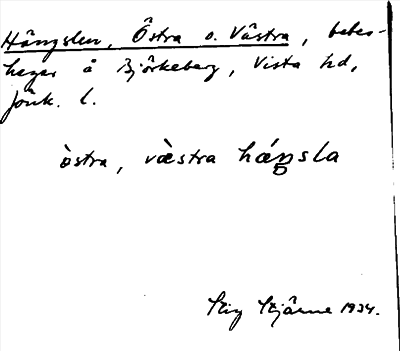 Hängslen, Östra o. Västra, bebeg-
helser å Björkeberg, Vista hd,
Jönk. l.
òstra, væ̀stra háŋsla
Stig Stjärne 1934.